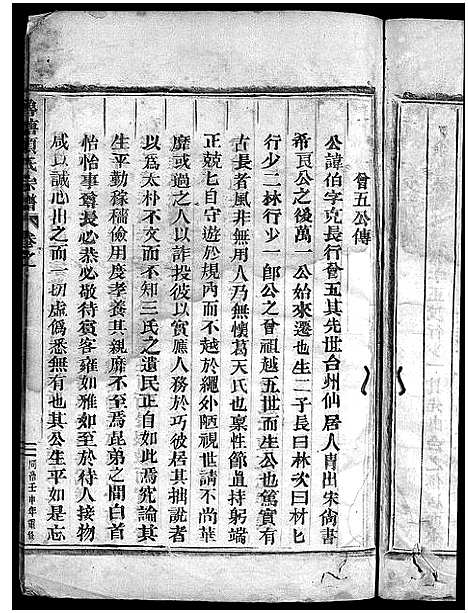 曾五公傳
公諱伯字克長行曾五其先世台州仙居人冑出宋尙書
希㒶公之後萬一公始來遷也生二子長曰林次曰材七
行少二林行少一郎公之曾祖越五世而生公也篤實有
古長者風非無用人乃無懷葛天氏也稟性節直持躬端
正兢七自守遊於規內而不越於繩外陋視世情不尚華
靡或過之人以詐投彼以實應人務於巧彼居其拙說者
以爲太朴不文而不知三氏之遺民正自如此焉究論其
生平勤稼穡儉用度孝養其親靡不至焉昆弟之間白首
怡怡事尊長必恭必敬待賓客雍如雅如至於待人接物
咸以誠心出之而一切虛僞悉無有也其公生平如是忘
氏宗譜
卷之
同治壬申年重修